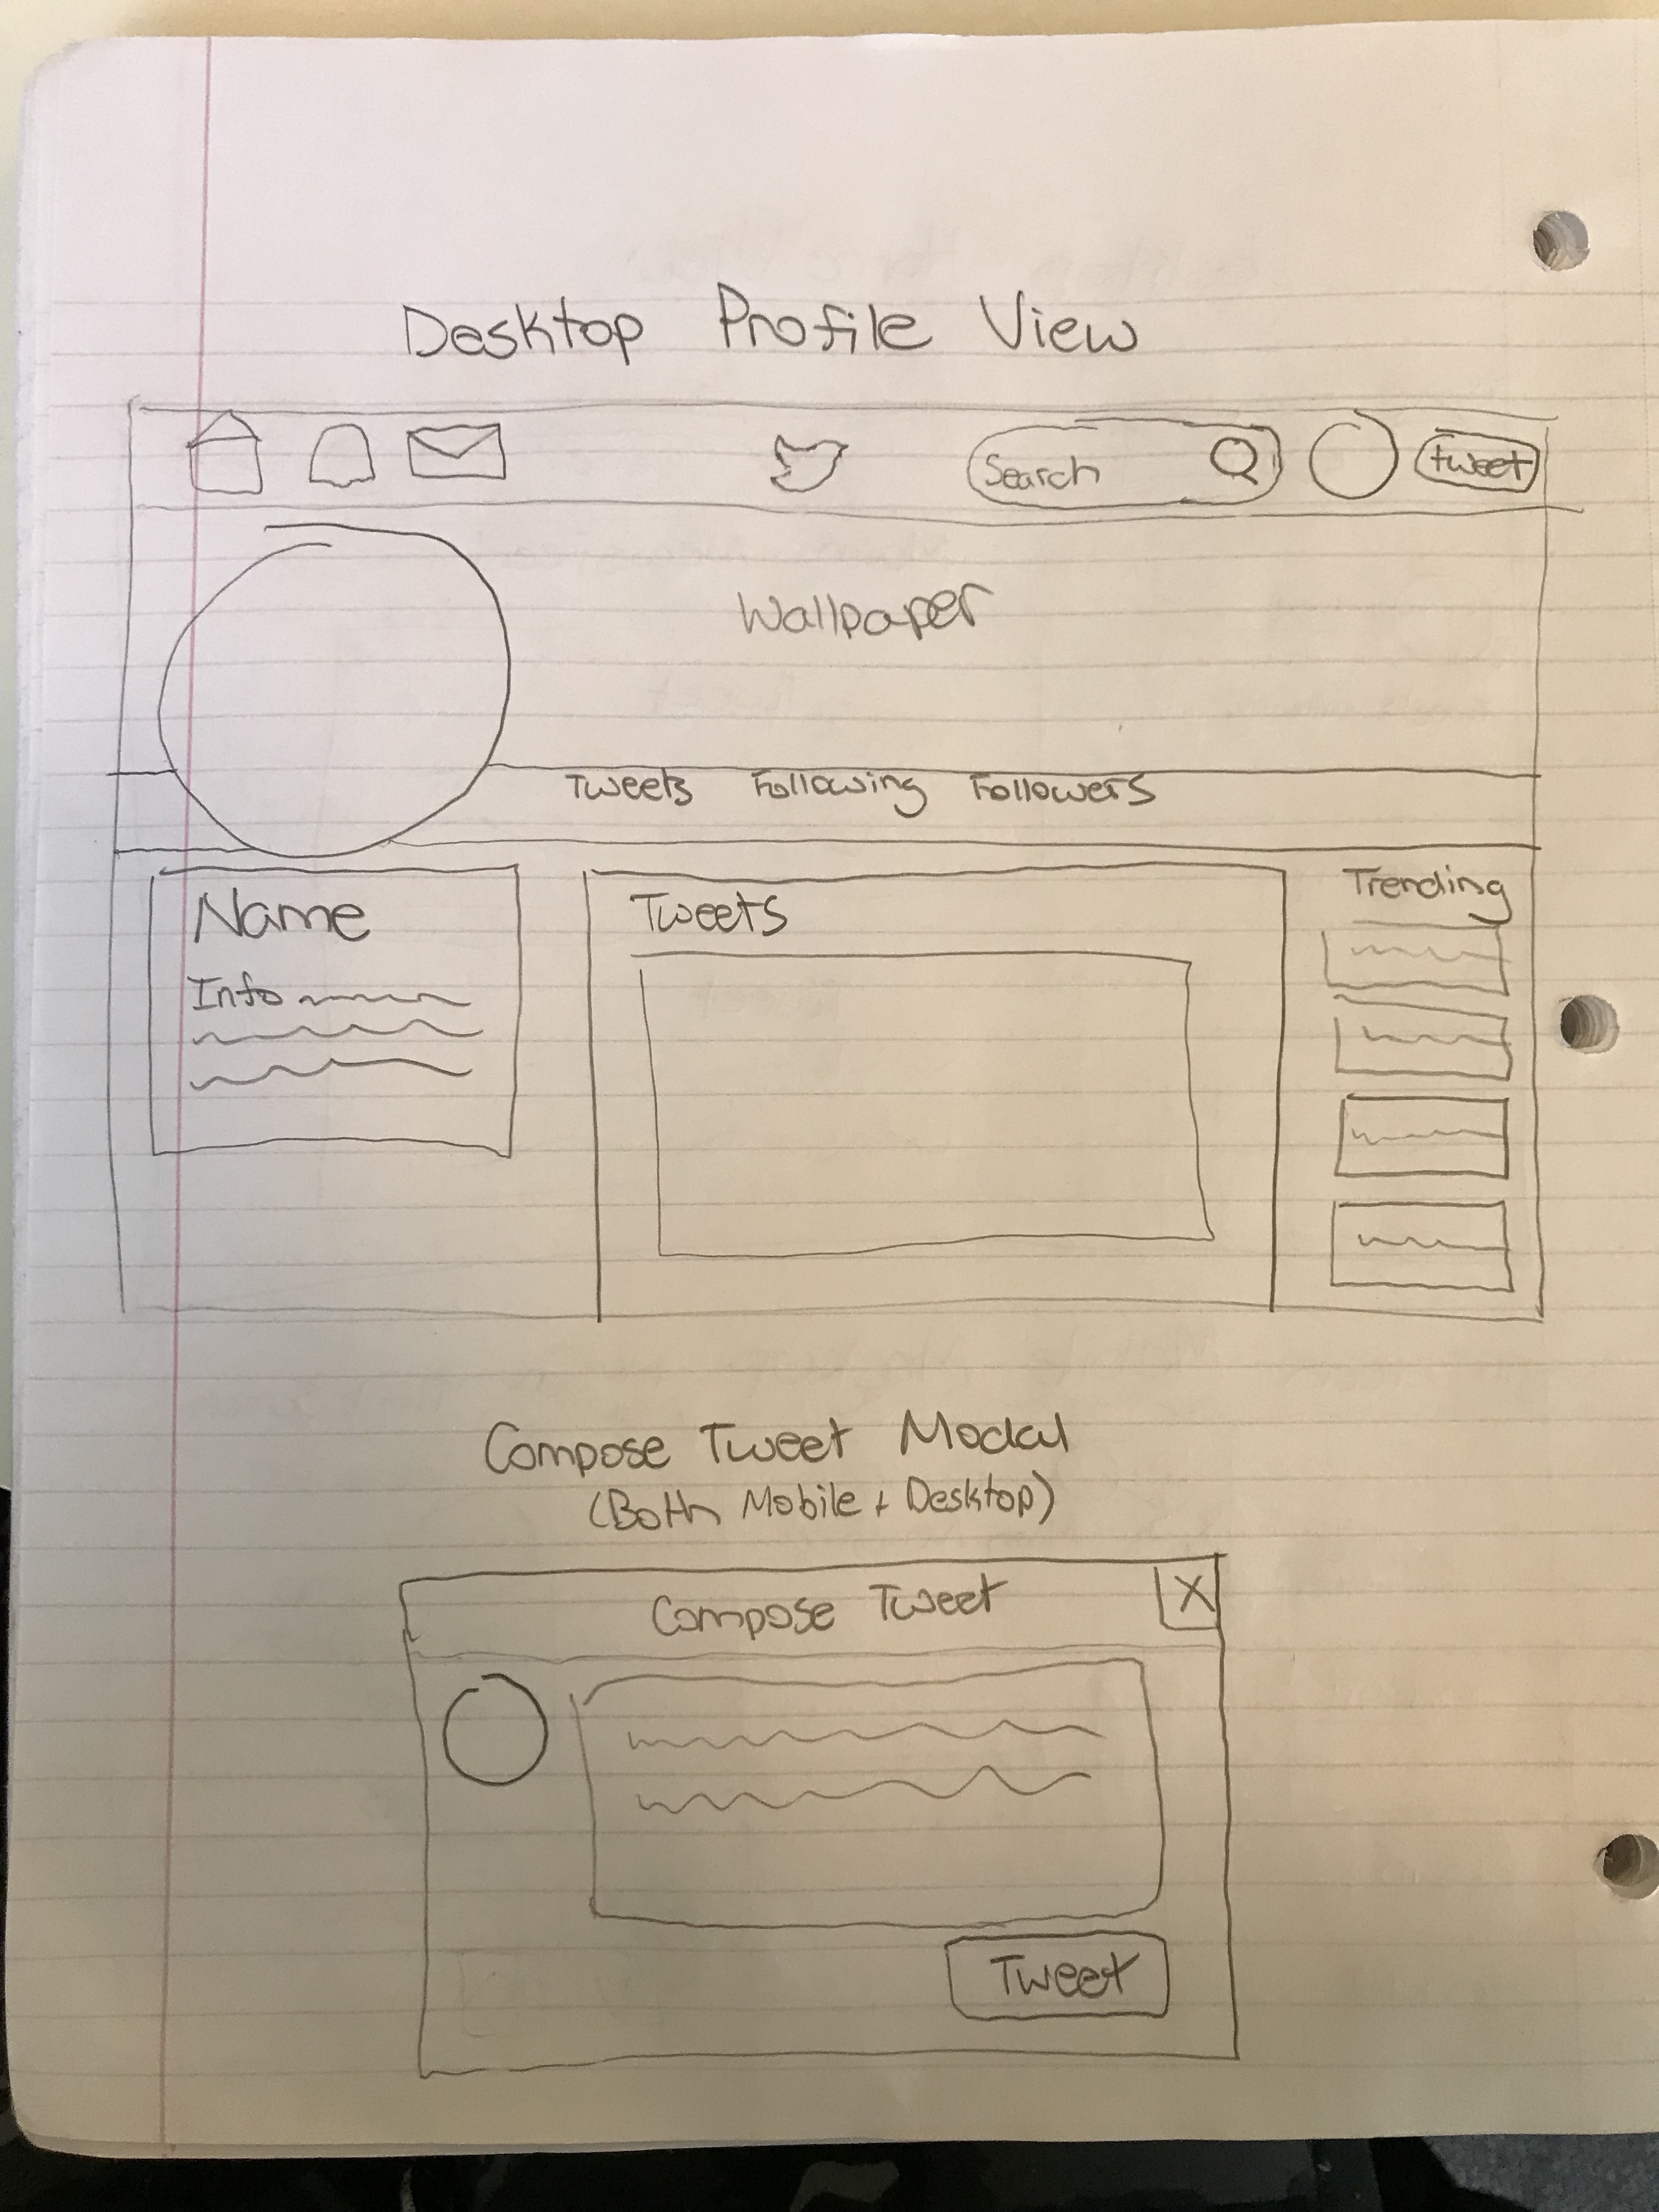 Desktop Profile View
Search
tweet
Wallpaper
Tweets Following Followers
Name
Info
Tweets
Trending
Compose Tweet Modal
(Both Mobile + Desktop)
Compose Tweet
X
Tweet